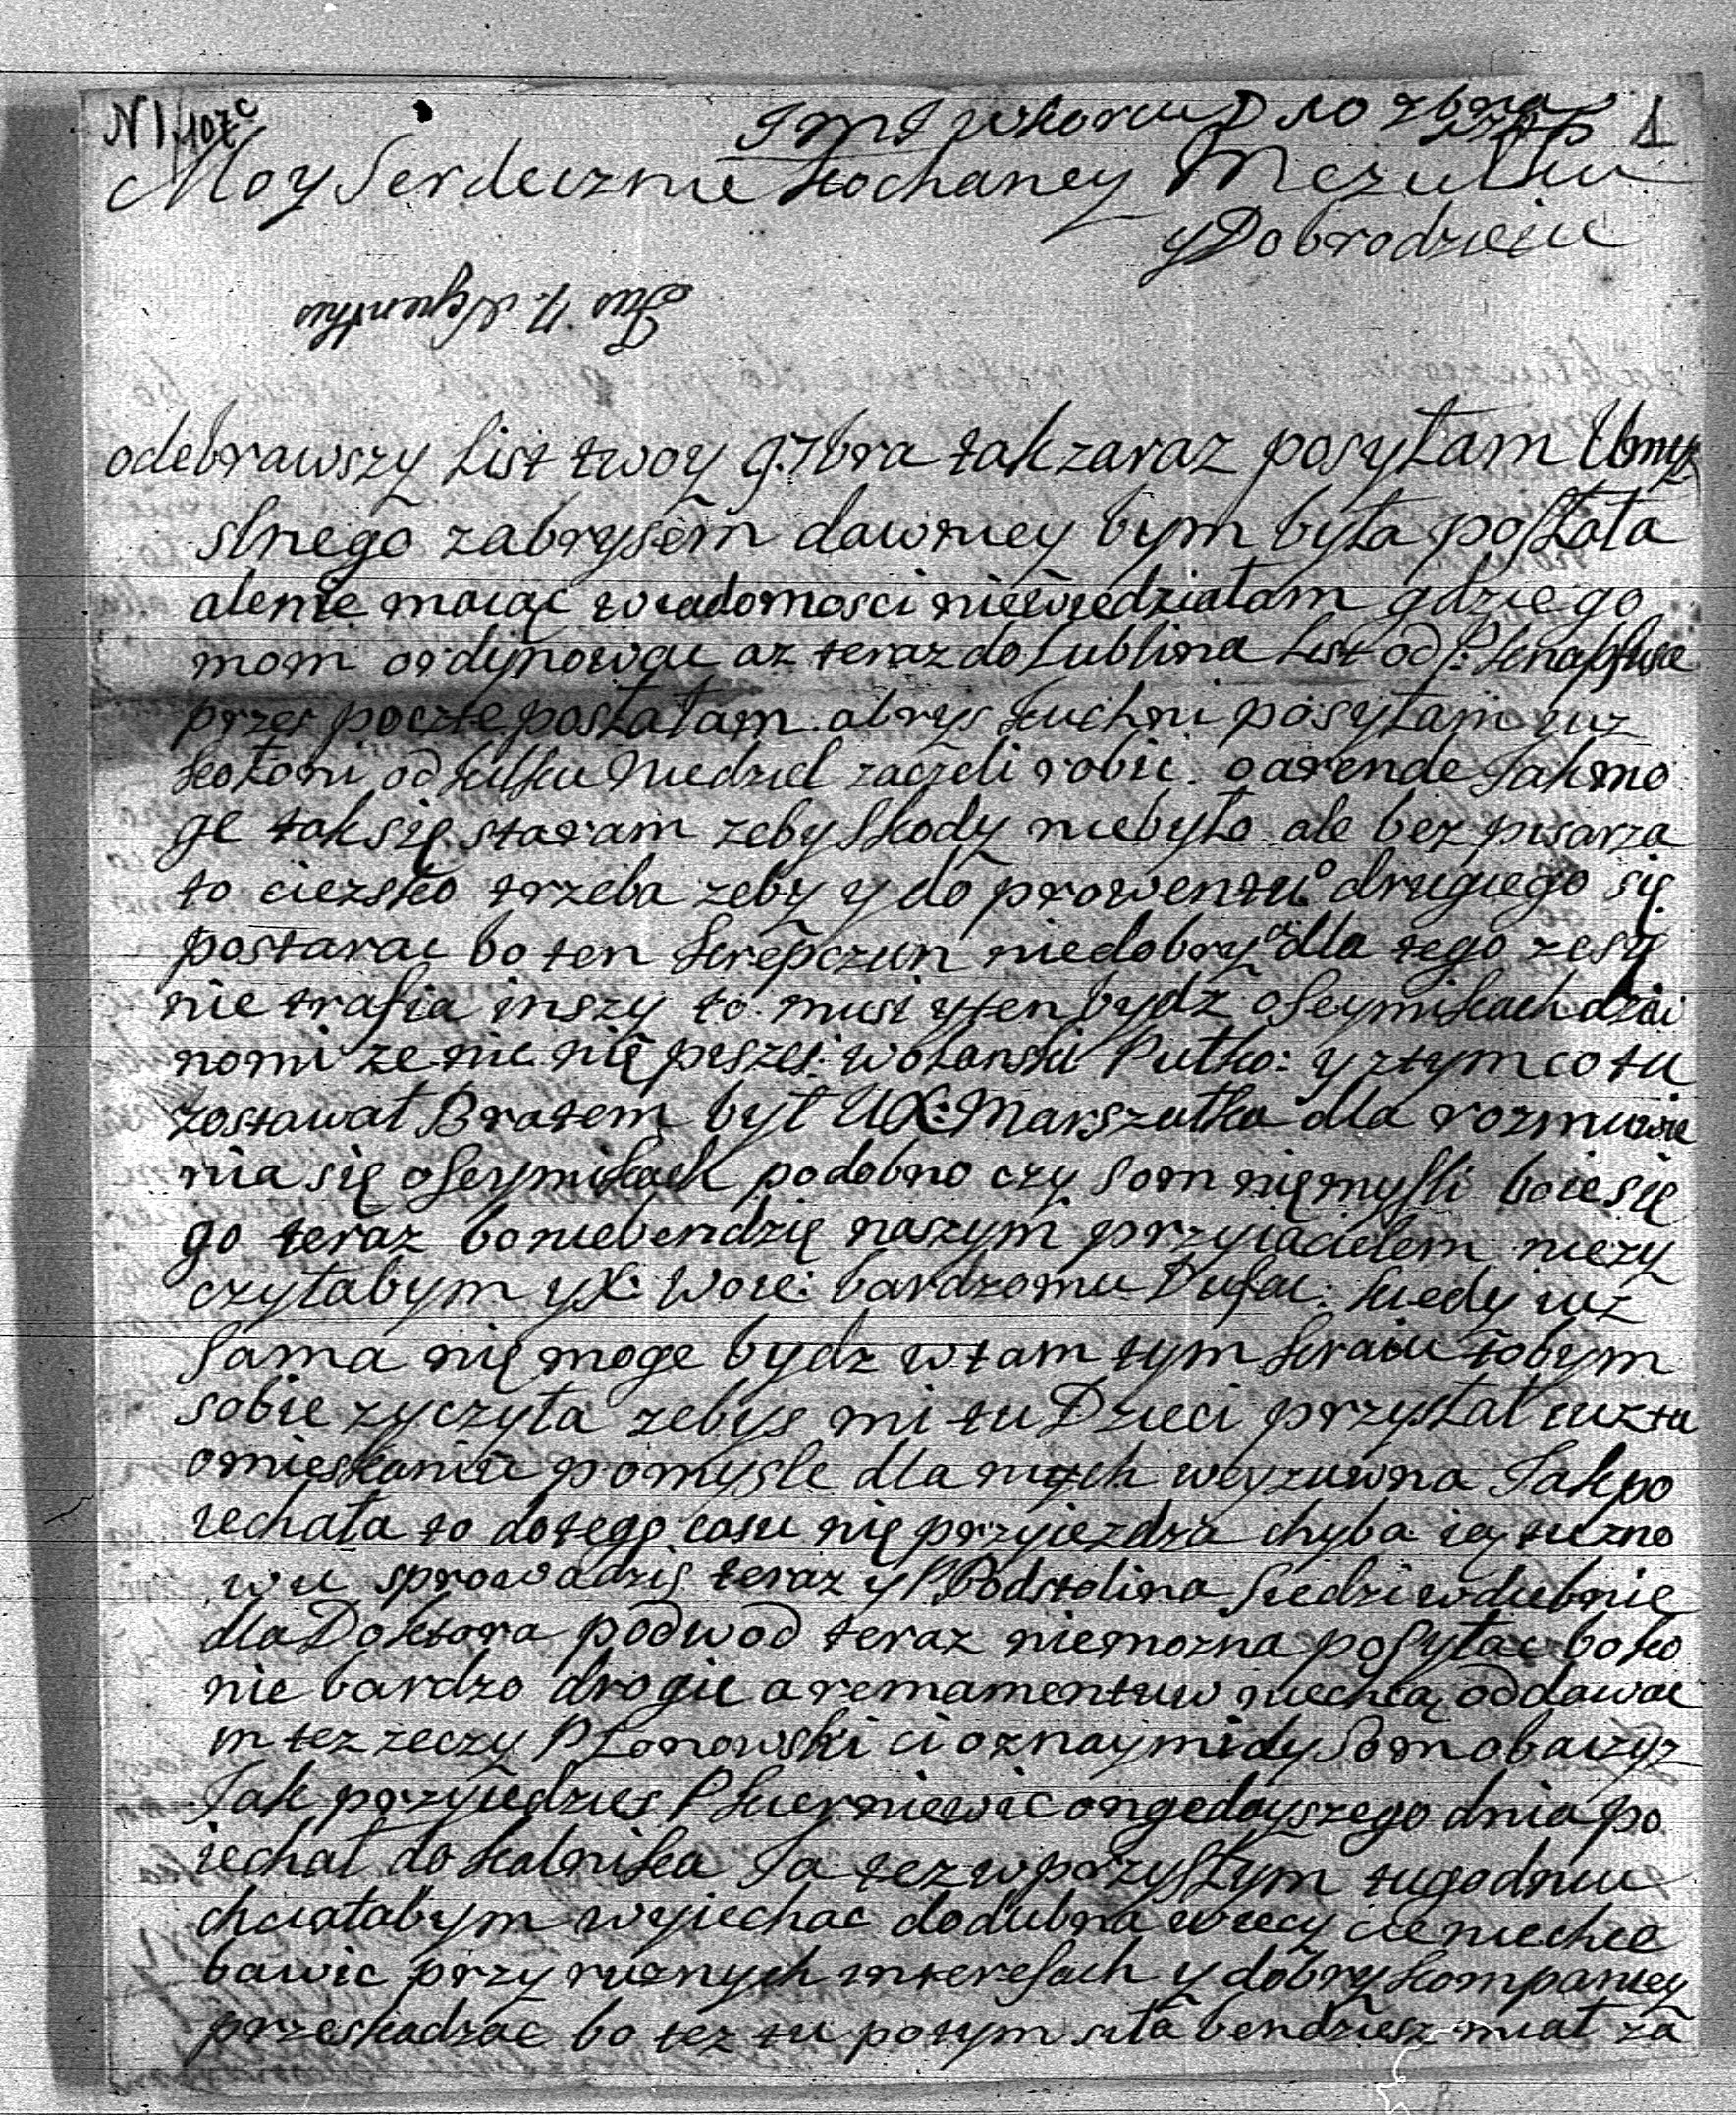 N1 107c
w Korcu D 10 7bra
1
Moy Serdecznie Kochaney Mezulku
y Dobrodzieiu
odebrawszy List twoy 9. 7bra tak zaraz posyłam Umy
slnego zabrysem dawniey bym była posłała
ale nie maiąc wiadomosci niewiedziałam gdzie go
mom ordynowac az teraz do Lublina List od P:
przez poczte posłałam abrys kuchni posyłam iuz
kołoni od kilku Niedziel zaczeli robic o arende Jak mo
ge tak się staram zeby skody niebyło ale bez pisarza
to ciezsko trzeba zeby y do prowentu drugiego się
postarac bo ten krepczun niedobry a dla tego ze się
nie trafia inszy to musi y ten bydz o seymikach dzi
nomi ze nic nię piszes: wolanski Pułko: y ztym co tu
zostawał Bratem był UX: Marszałka dla rozmuwie
nia się o seymikach podobno czy som nię mysli boie się
go teraz bo niebendzię naszym przyiacielem niezy
czyłabym y X: Woie: bardzo mu Dufac: kiedy iuz
sama nię moge bydz w tam tym kraiu to bym
sobie zyczyła zebys mi tu Dzieci przysłał iuz tu
omięskaniu pomysle dla nych wyzuwna Jak po
iechała to do tego casu nię przyiezdza chyba iey tu zno
wu sprowadzię teraz y P Podstolina siedzi w dubnie
dla Doktora podwod teraz niemozna posyłac bo ko
nie bardzo drogie a remamentuw niechcą oddawac
m tez rzeczy P Łonowski ci oznaymi dy Som obaczyz
Jak przyiedzies P Kierniewic ongedayszego dnia po
iechał do kalnika Ja tez w przyszłym tugodniu
chciałabym wyiechac do dubna wiecy cie niechce
bawic przy ruznych interesach y dobry kompaniey
przeskadzac bo tez tu potym siła bendziesz miał za